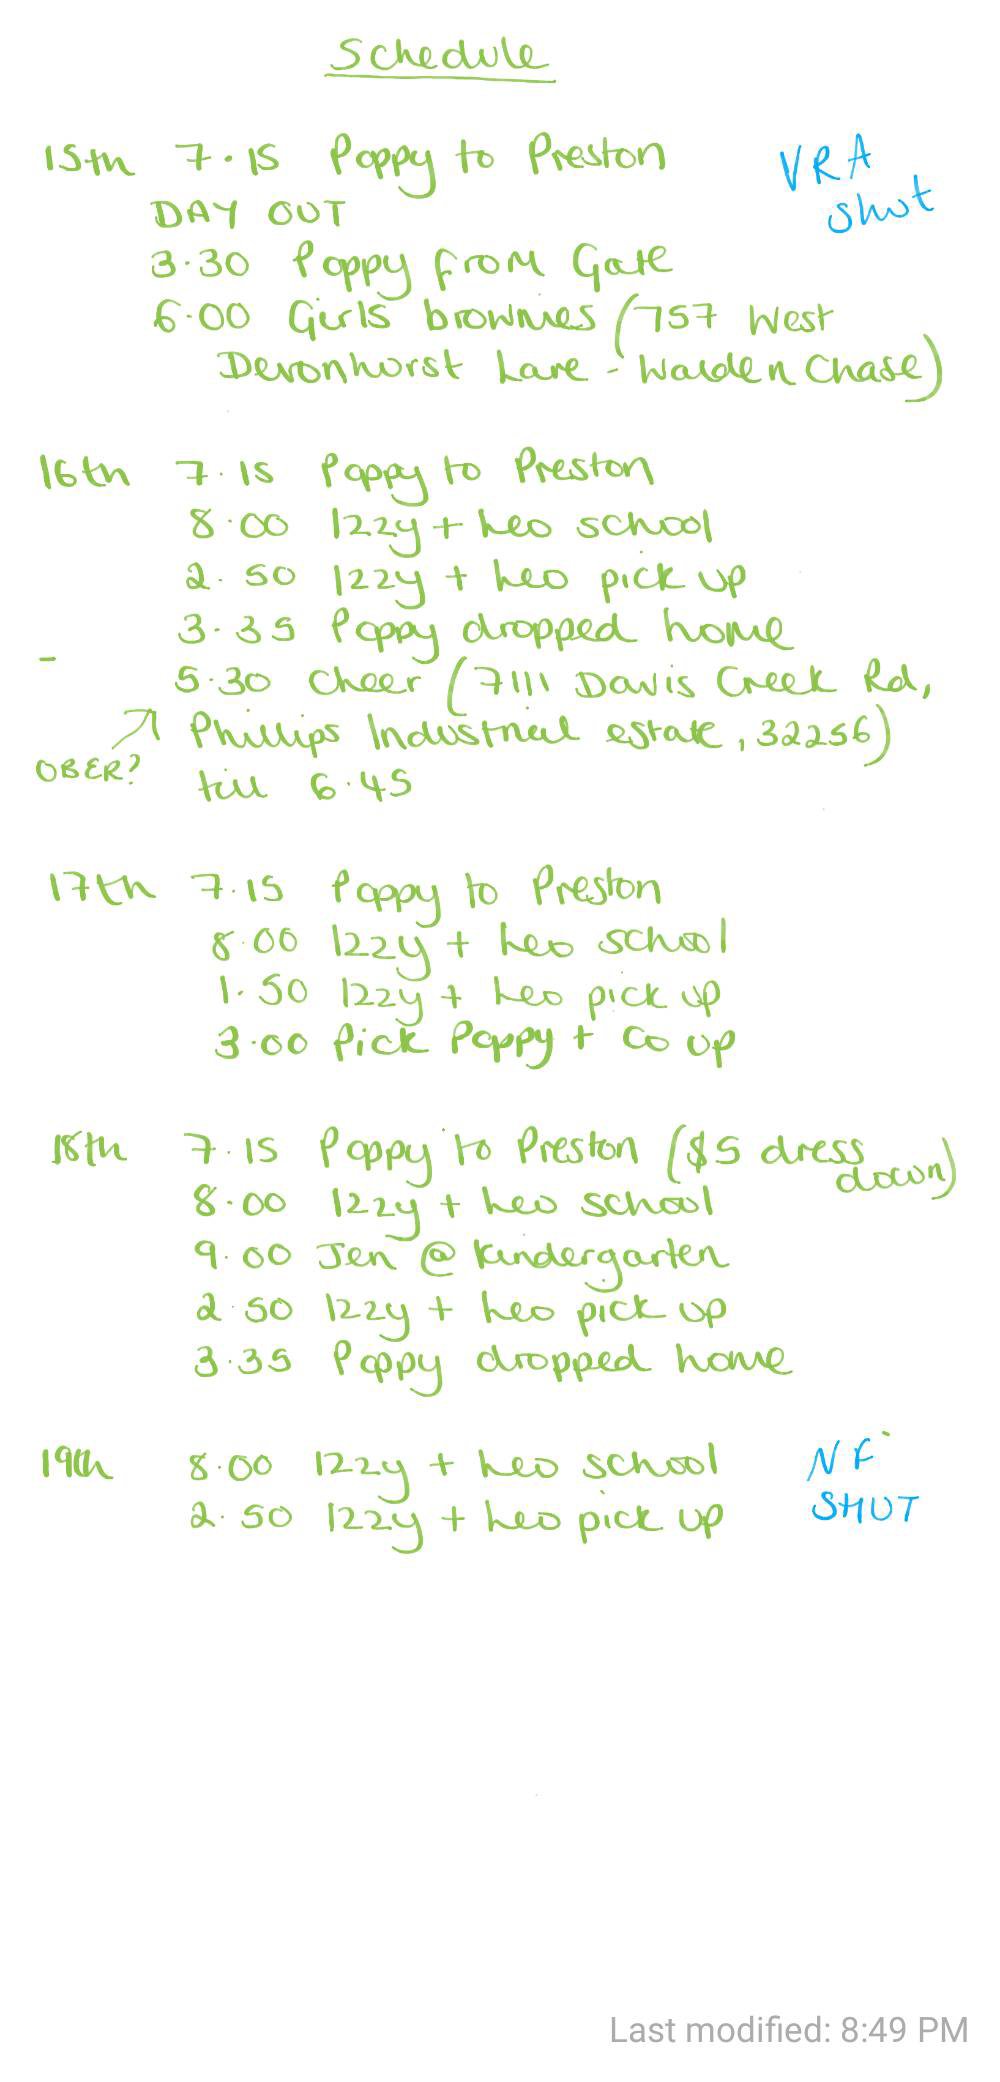 Schedule
15th 7.15 Poppy to Preston
VRA
shut
DAY OUT
3.30 Poppy from Gate
6.00 Girls brownies (757 West
Devonhurst Lane - Walden Chase)
16th 7.15 Poppy to Preston
8.00 Izzy + Leo school
2.50 Izzy + Leo pick up
3.35 Poppy dropped home
-
5.30 Cheer (7111 Davis Creek Rd,
Phillips Industrial estate, 32256)
OBER?
till 6.45
17th 7.15 Poppy to Preston
8.00 Izzy + Leo school
1.50 Izzy + Leo pick up
3.00 Pick Poppy + Co up
18th 7.15 Poppy to Preston ($5 dress
down)
8.00 Izzy + Leo school
9.00 Jen @ kindergarten
2.50 Izzy + Leo pick up
3.35 Poppy dropped home
19th 8.00 Izzy + Leo school
NF
SHUT
2.50 Izzy + Leo pick up
Last modified: 8:49 PM